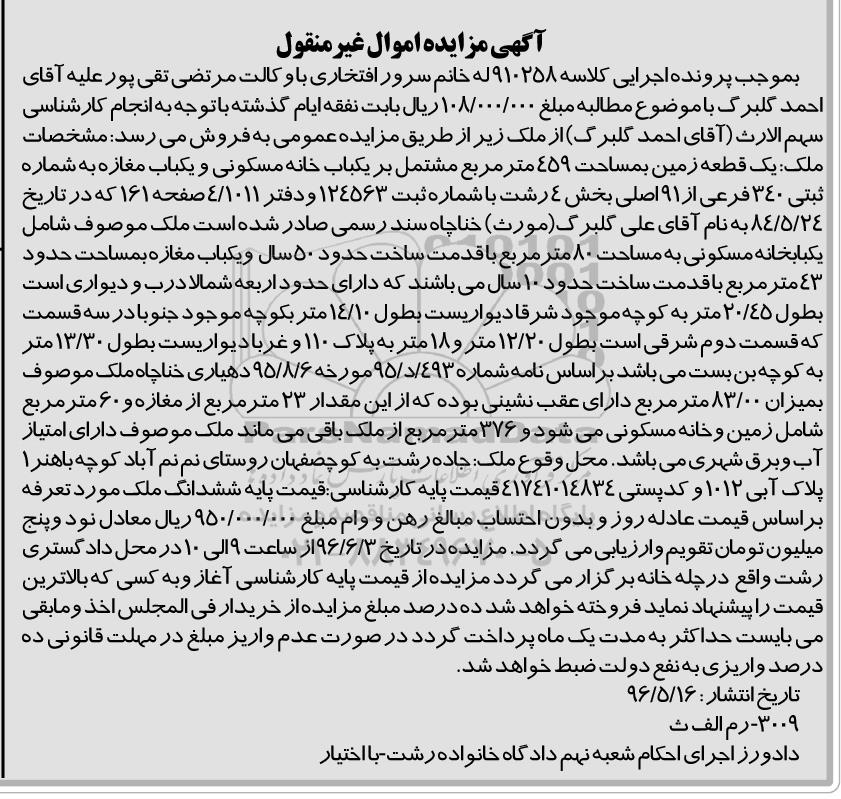 آگهی مزایده اموال غیر منقول
بموجب پرونده اجرایی کلاسه ۹۱۰۲۵۸ له خانم سرور افتخاری با وکالت مرتضی تقی پور علیه آقای
احمد گلبرگ با موضوع مطالبه مبلغ ۱۰۸/۰۰۰/۰۰۰ ریال بابت نفقه ایام گذشته با توجه به انجام کارشناسی
سهم الارث (آقای احمد گلبرگ) از ملک زیر از طریق مزایده عمومی به فروش می رسد: مشخصات
ملک: یک قطعه زمین بمساحت ۴۵۹ متر مربع مشتمل بر یکباب خانه مسکونی و یکباب مغازه به شماره
ثبتی ۳۴۰ فرعی از ۹۱ اصلی بخش ۴ رشت با شماره ثبت ۱۲۴۵۶۳ و دفتر ۴/۱۰۱۱ صفحه ۱۶۱ که در تاریخ
۸۴/۵/۲۴ به نام آقای علی گلبرگ (مورث) خناچاه سند رسمی صادر شده است ملک موصوف شامل
یکبابخانه مسکونی به مساحت ۸۰ متر مربع با قدمت ساخت حدود ۵۰ سال و یکباب مغازه بمساحت حدود
۴۳ متر مربع با قدمت ساخت حدود ۱۰ سال می باشند که دارای حدود اربعه شمالا درب و دیواری است
بطول ۲۰/۴۵ متر به کوچه موجود شرقا دیواریست بطول ۱۴/۱۰ متر بکوچه موجود جنوبا در سه قسمت
که قسمت دوم شرقی است بطول ۱۲/۲۰ متر و ۱۸ متر به پلاک ۱۱۰ و غربا دیواریست بطول ۱۳/۳۰ متر
به کوچه بن بست می باشد بر اساس نامه شماره ۴۹۳/د/۹۵ مورخه ۹۵/۸/۶ دهیاری خناچاه ملک موصوف
بمیزان ۸۳/۰۰ متر مربع دارای عقب نشینی بوده که از این مقدار ۲۳ متر مربع از مغازه و ۶۰ متر مربع
شامل زمین و خانه مسکونی می شود و ۳۷۶ متر مربع از ملک باقی می ماند ملک موصوف دارای امتیاز
آب و برق شهری می باشد. محل وقوع ملک: جاده رشت به کوچصفهان روستای نم نم آباد کوچه باهنر ۱
پلاک آبی ۱۰۱۲ و کدپستی ۴۱۷۴۱۰۱۴۸۳۴ قیمت پایه کارشناسی: قیمت پایه ششدانگ ملک مورد تعرفه
بر اساس قیمت عادله روز و بدون احتساب مبالغ رهن و وام مبلغ ۹۵۰/۰۰۰/۰۰۰ ریال معادل نود و پنج
میلیون تومان تقویم وارزیابی می گردد. مزایده در تاریخ ۹۶/۶/۳ از ساعت ۹ الی ۱۰ در محل دادگستری
رشت واقع در چله خانه برگزار می گردد مزایده از قیمت پایه کارشناسی آغاز و به کسی که بالاترین
قیمت را پیشنهاد نماید فروخته خواهد شد ده درصد مبلغ مزایده از خریدار فی المجلس اخذ و مابقی
می بایست حداکثر به مدت یک ماه پرداخت گردد در صورت عدم واریز مبلغ در مهلت قانونی ده
درصد واریزی به نفع دولت ضبط خواهد شد.
تاریخ انتشار: ۹۶/۵/۱۶
۳۰۰۹- رم الف ث
دادورز اجرای احکام شعبه نهم دادگاه خانواده رشت- با اختیار
ParsNamadData